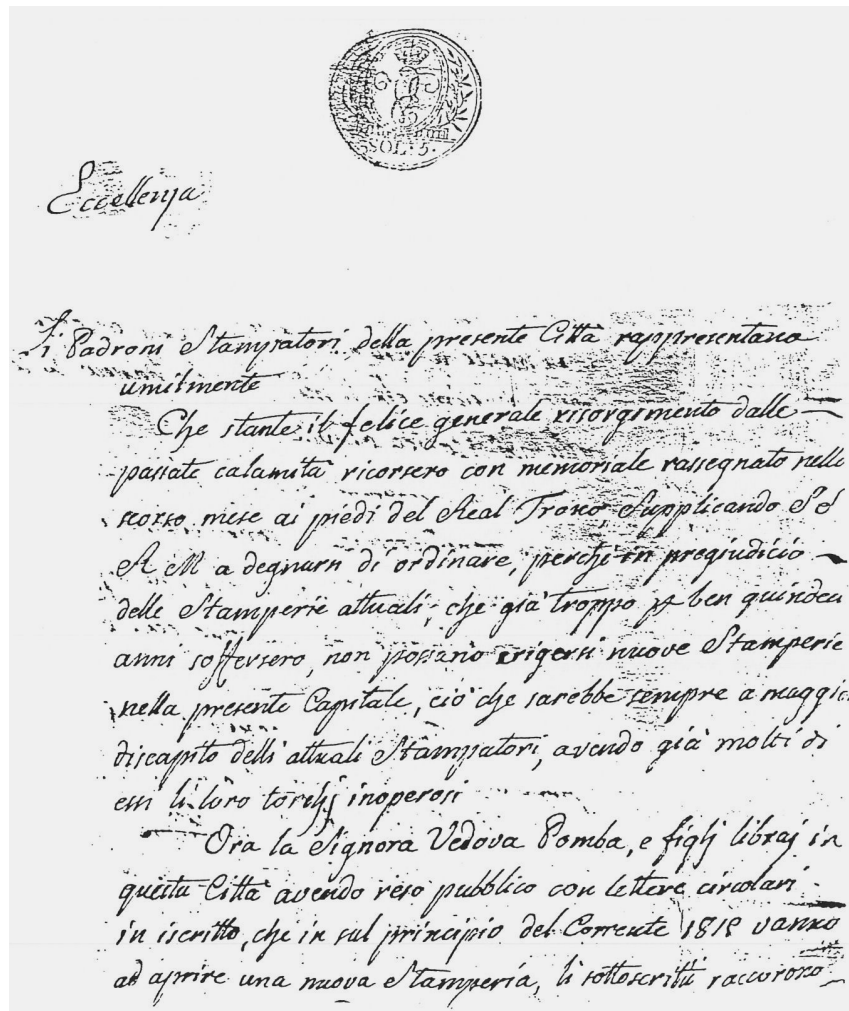 SOL: 5.
Eccellenza
Li Padroni Stampatori della presente Città rappresentano
umilmente
Che stante il felice generale risorgimento dalle
passate calamità ricorsero con memoriale rassegnato nello
scorso mese ai piedi del Real Trono, supplicando
R M a degnarsi di ordinare, perchè in pregiudicio
delle Stamperie attuali, che già troppo p ben quindeci
anni soffersero, non possano erigersi nuove Stamperie
nella presente Capitale, ciò che sarebbe sempre a maggior
discapito delli attuali Stampatori, avendo già molti di
essi li loro torchj inoperosi
Ora la Signora Vedova Pomba, e figlj libraj in
questa Città avendo reso pubblico con lettere circolari
in iscritto, che in sul principio del Corrente vanno
ad aprire una nuova Stamperia, li sottoscritti raccorono